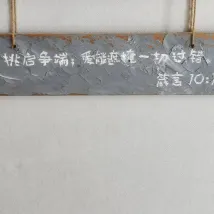 挑启争端；爱能遮掩一切过错
箴言 10: